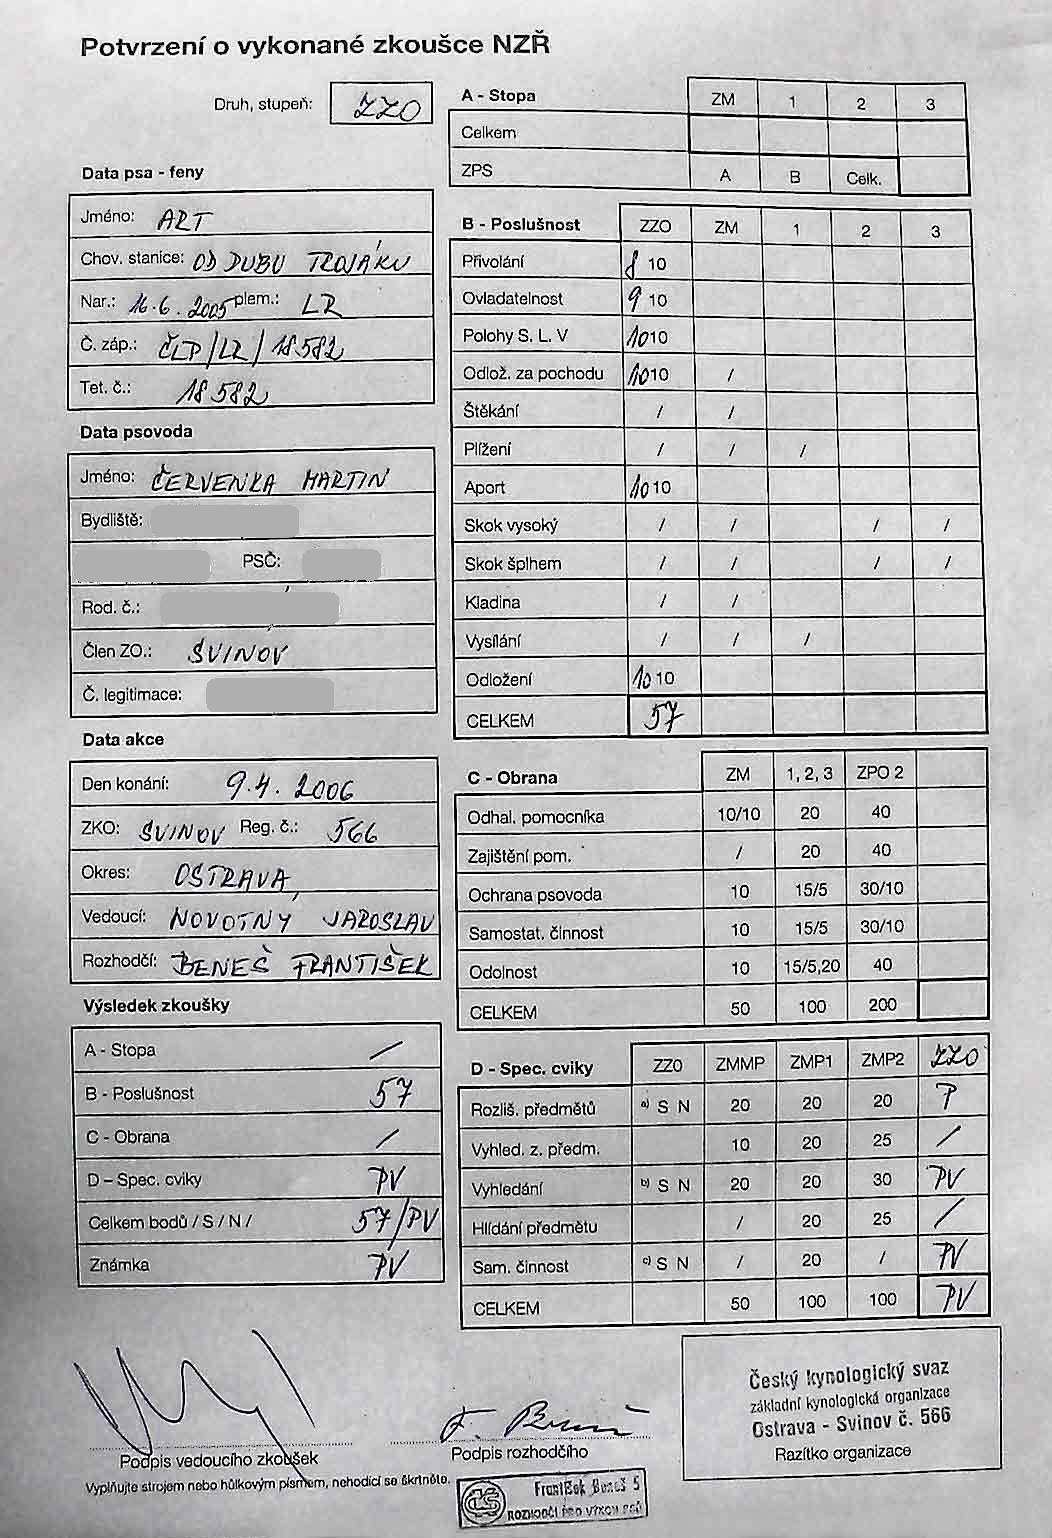 Potvrzení o vykonané zkoušce NZŘ
Druh, stupeň: ZZO
Data psa - feny
Jméno: ART
Chov. stanice: OD DUBU TROJÁKU
Nar.: 16.6.2005 plem.: LR
Č. záp.: ČLP/LR/18582
Tet. č.: 18582
Data psovoda
Jméno: ČERVENKA MARTIN
Bydliště:
PSČ:
Rod. č.:
Člen ZO.: SVINOV
Č. legitimace:
Data akce
Den konání: 9.4.2006
ZKO: SVINOV Reg. č.: 566
Okres: OSTRAVA
Vedoucí: NOVOTNÝ JAROSLAV
Rozhodčí: BENEŠ FRANTIŠEK
Výsledek zkoušky
A - Stopa /
B - Poslušnost 57
C - Obrana /
D - Spec. cviky PV
Celkem bodů / S / N / 57/PV
Známka PV
A - Stopa ZM 1 2 3
Celkem
ZPS A B Celk.
B - Poslušnost ZZO ZM 1 2 3
Přivolání 8 10
Ovladatelnost 9 10
Polohy S. L. V 10 10
Odlož. za pochodu 10 10 /
Štěkání / /
Plížení / / /
Aport 10 10
Skok vysoký / / / /
Skok šplhem / / / /
Kladina / /
Vysílání / / /
Odložení 10 10
CELKEM 57
C - Obrana ZM 1, 2, 3 ZPO 2
Odhal. pomocníka 10/10 20 40
Zajištění pom. / 20 40
Ochrana psovoda 10 15/5 30/10
Samostat. činnost 10 15/5 30/10
Odolnost 10 15/5,20 40
CELKEM 50 100 200
D - Spec. cviky ZZO ZMMP ZMP1 ZMP2 ZZO
Rozliš. předmětů a) S N 20 20 20 P
Vyhled. z. předm. 10 20 25 /
Vyhledání b) S N 20 20 30 PV
Hlídání předmětu / 20 25 /
Sam. činnost c) S N / 20 / PV
CELKEM 50 100 100 PV
Podpis vedoucího zkoušek
Podpis rozhodčího
Vyplňujte strojem nebo hůlkovým písmem, nehodící se škrtněte.
Český kynologický svaz
základní kynologická organizace
Ostrava - Svinov č. 566
Razítko organizace
František Beneš 5
ROZHODČÍ PRO VÝKON PSŮ